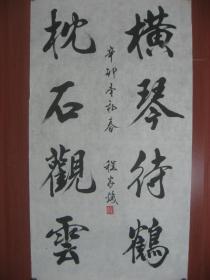 橫琴待鶴
枕石觀雲
辛卯年初春
程家